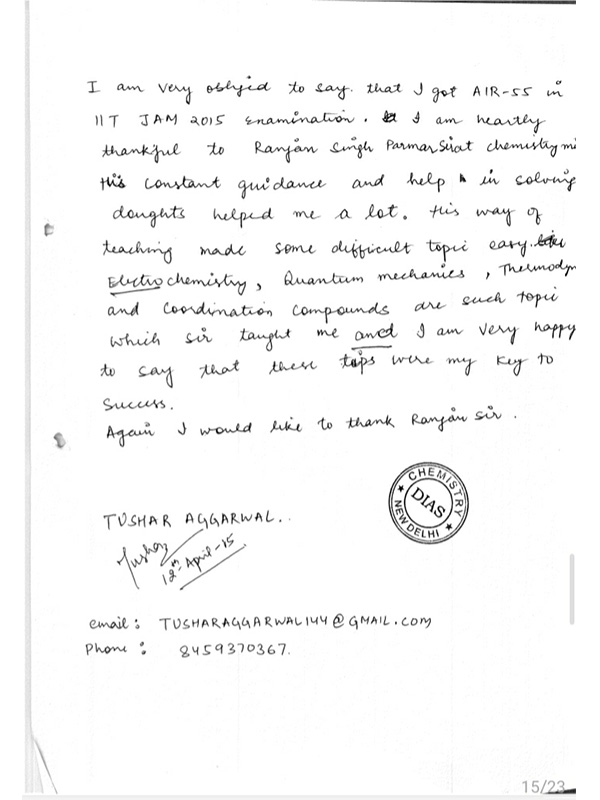 I am very obljied to say. that I got AIR-55 in
IIT JAM 2015 Examination. I am heartly
thankful to Ranjan Singh Parmar Sir at chemistry mi
His constant guidance and help in solving
doughts helped me a lot. His way of
teaching made some difficult topic easy.
Electrochemistry, Quantum mechanics, Thermodyn
and coordination compounds are such topic
which sir taught me and I am very happy
to say that these tips were my key to
success.
Again I would like to thank Ranjan sir.
CHEMISTRY
DIAS
NEW DELHI
TUSHAR AGGARWAL..
Tushar
12th April-15
email: TUSHARAGGARWAL144@GMAIL.COM
Phone: 8459370367.
15/23